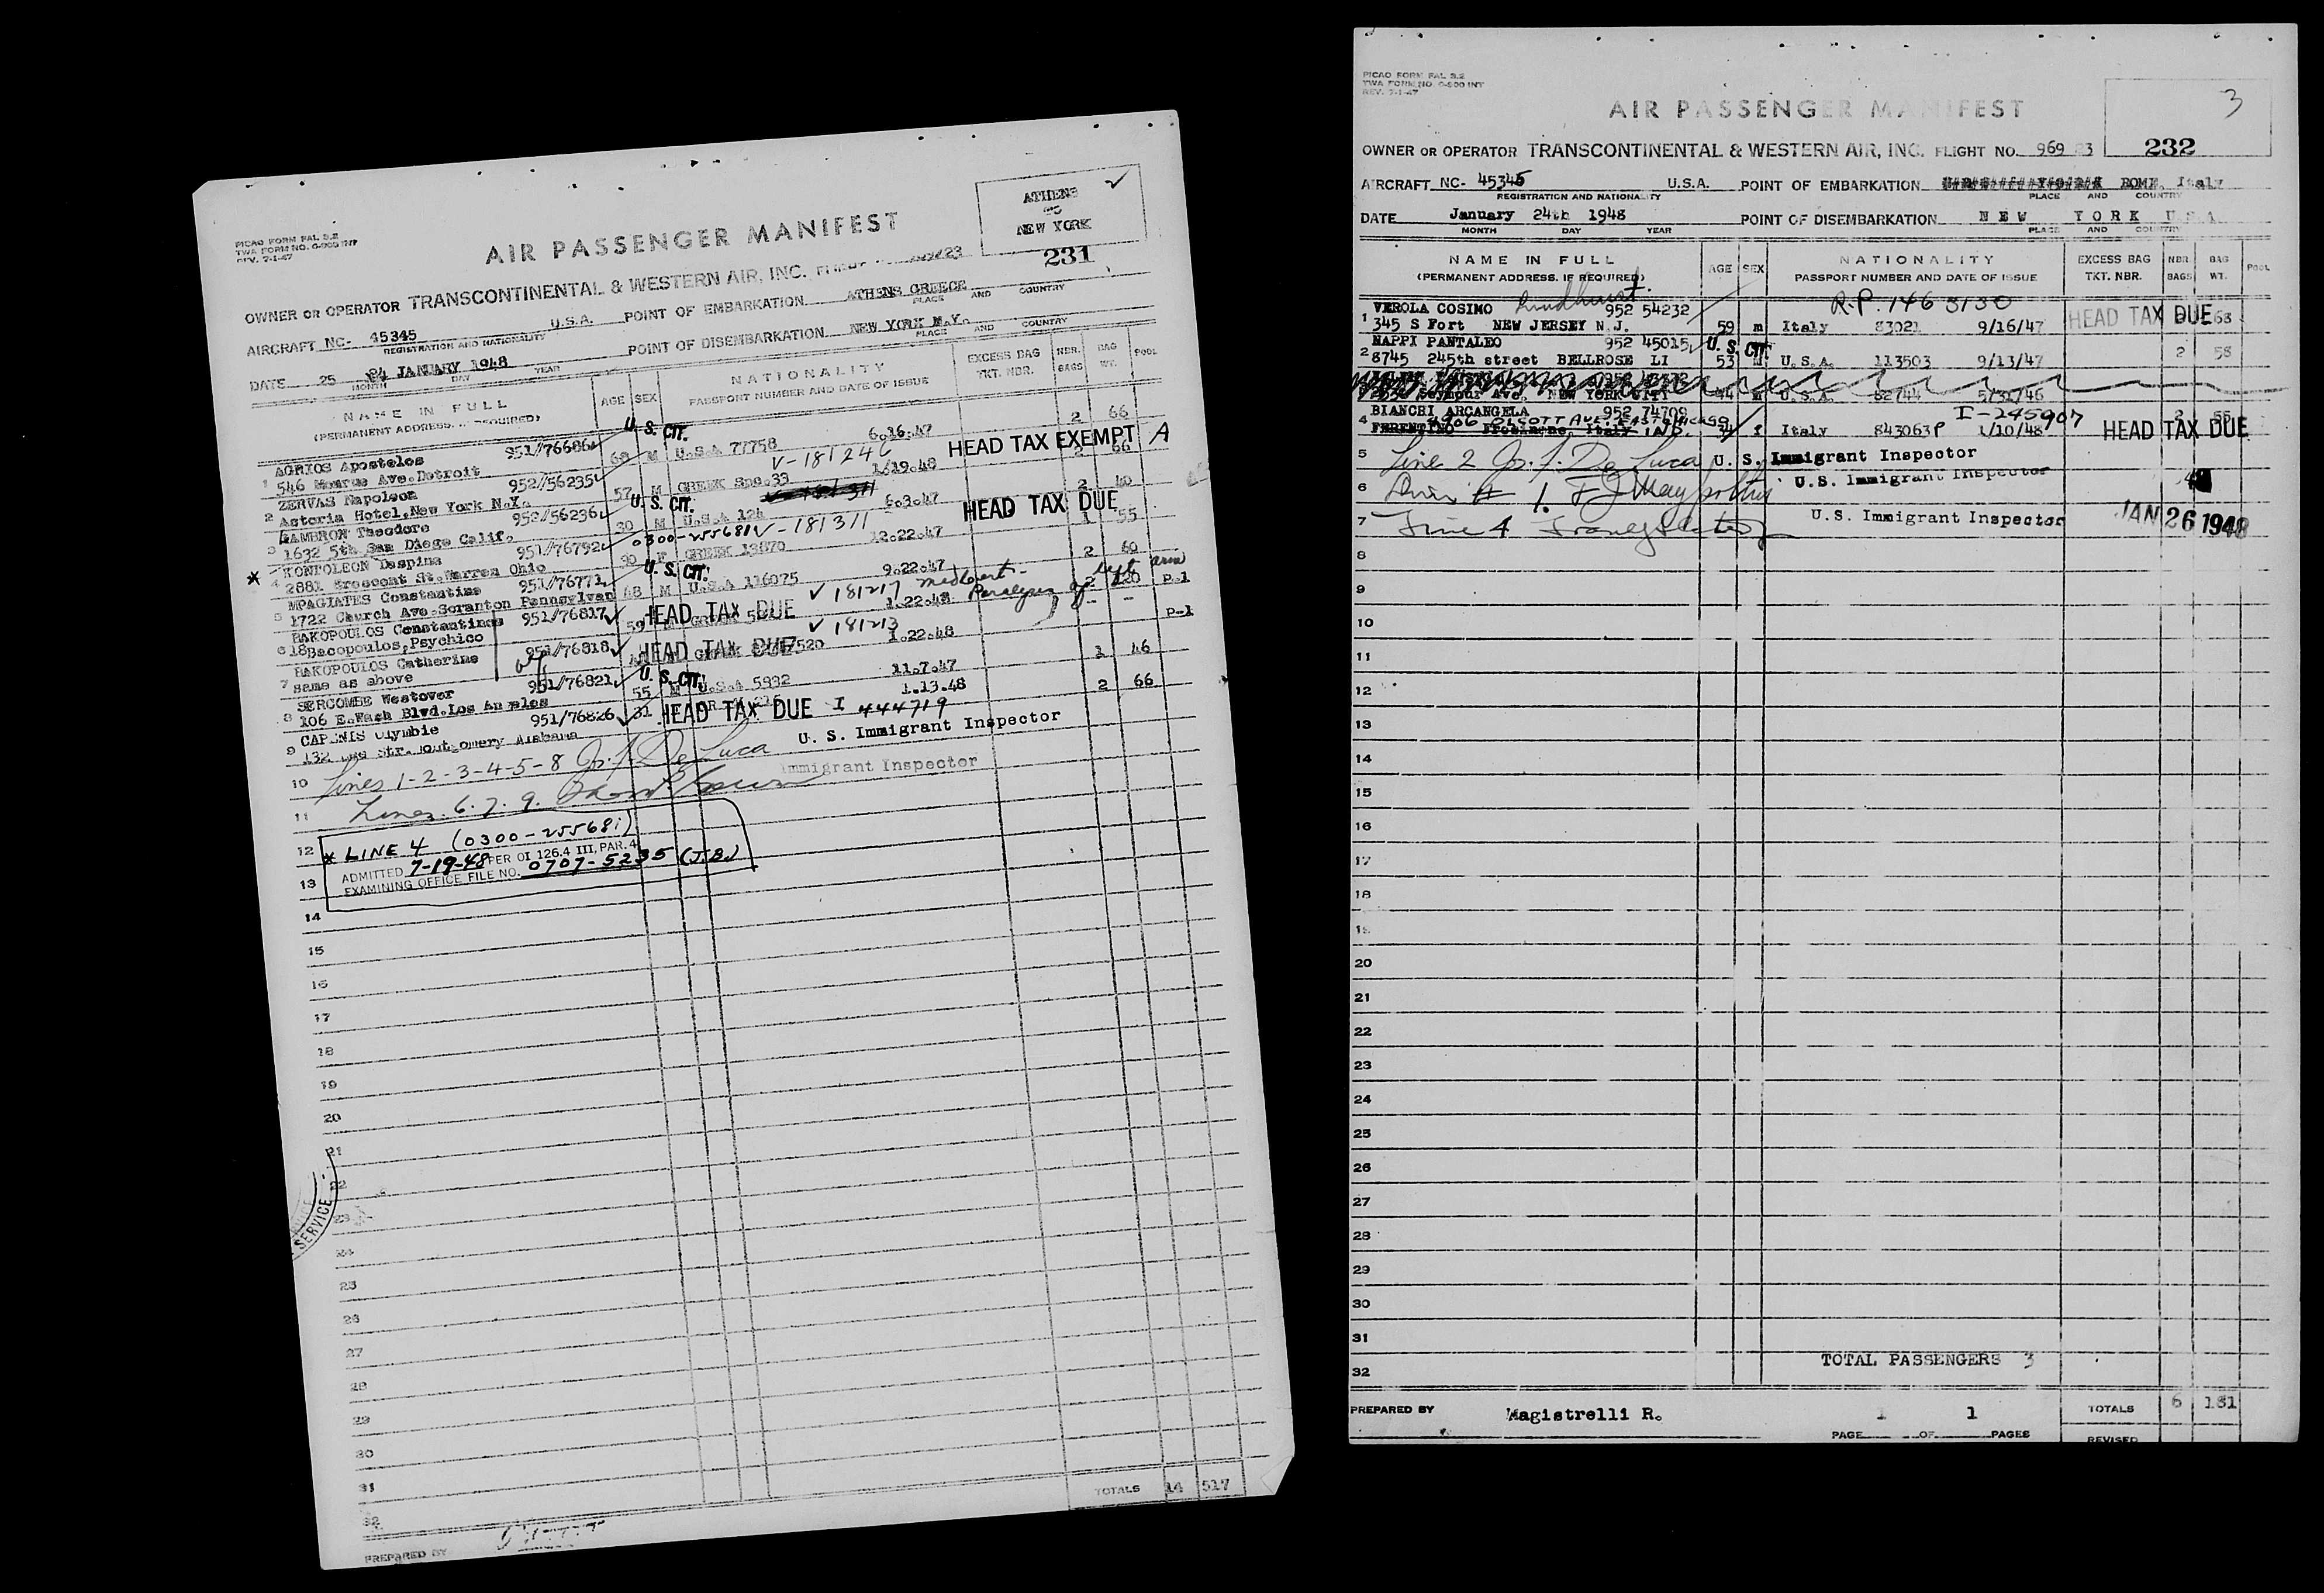 PICAO FORM FAL 3.2
TWA FORM NO. O-900 INT
REV. 7-1-47
AIR PASSENGER MANIFEST
ATHENS
TO
NEW YORK
231
OWNER OR OPERATOR TRANSCONTINENTAL & WESTERN AIR, INC.
AIRCRAFT NC- 45345 U.S.A. POINT OF EMBARKATION ATHENS GREECE
REGISTRATION AND NATIONALITY PLACE AND COUNTRY
DATE 25 24 JANUARY 1948 POINT OF DISEMBARKATION NEW YORK N.Y.
MONTH DAY YEAR PLACE AND COUNTRY
NAME IN FULL AGE SEX NATIONALITY EXCESS BAG NBR. BAG POOL
(PERMANENT ADDRESS. IF REQUIRED) PASSPORT NUMBER AND DATE OF ISSUE TKT. NBR. BAGS WT.
AGRIOS Apostolos 951//76686 U. S. CIT.
1 546 Monroe Ave.Detroit 68 M U.S.A 77758 6.16.47 2 66
ZERVAS Napoleon 952//56235 V-181246 HEAD TAX EXEMPT A
2 Astoria Hotel,New York N.Y. 57 M GREEK Spe.33 1/19.48 2 66
Theodore 952//56236 U. S. CIT.
3 1632 5th San Diego Calif. 30 M U.S.A 124 6.3.47 2 40
* KONTOLEON Despina 951//76792 0300-255681 V-181311 HEAD TAX DUE
4 2881 Crescent St.Warren Ohio 90 F GREEK 13870 12.22.47 1 55
MPAGIATES Constantine 951//76771 U. S. CIT.
5 1722 Church Ave.Scranton Pennsylvan 68 M U.S.A 116075 9.22.47 2 60
BAKOPOULOS Constantinos 951/76817 HEAD TAX DUE V 181217 Med cert. Paralysis of left arm
6 18Bacopoulos,Psychico 59 M GREEK 1.22.48 2 120 P-1
BAKOPOULOS Catherine 951/76818 HEAD TAX DUE V 181213
7 same as above 1.22.48 - - P-1
SERCOMBE Westover 951/76821 U. S. CIT.
8 106 E.Wash Blvd.Los Angeles 55 M U.S.A 5932 11.7.47 1 46
951/76826 HEAD TAX DUE I 444719
9 Str. Montgomery Alabama 31 1.13.48 2 66
10 Lines 1-2-3-4-5-8 Jo. J. De Luca U. S. Immigrant Inspector
11 Lines 6. 7. 9. Immigrant Inspector
12 * LINE 4 (0300-255681)
ADMITTED 7-19-48 PER OI 126.4 III, PAR. 4
13 EXAMINING OFFICE FILE NO. 0707-5235 (J.B.)
14
15
16
17
18
19
20
21
22
23
24
25
26
27
28
29
30
31
32
SERVICE
TOTALS 14 517
PREPARED BY
PICAO FORM FAL 3.2
TWA FORM NO. O-900 INT
REV. 7-1-47
AIR PASSENGER MANIFEST
3
232
OWNER OR OPERATOR TRANSCONTINENTAL & WESTERN AIR, INC. FLIGHT NO. 969 23
AIRCRAFT NC- 45345 U.S.A. POINT OF EMBARKATION ROME, Italy
REGISTRATION AND NATIONALITY PLACE AND COUNTRY
DATE January 24th 1948 POINT OF DISEMBARKATION NEW YORK U.S.A.
MONTH DAY YEAR PLACE AND COUNTRY
NAME IN FULL AGE SEX NATIONALITY EXCESS BAG NBR BAG POOL
(PERMANENT ADDRESS. IF REQUIRED) PASSPORT NUMBER AND DATE OF ISSUE TKT. NBR. BAGS WT.
VEROLA COSIMO Lindhurst. 952 54232 R.P. 1463130
1 345 S Fort NEW JERSEY N.J. 59 m Italy 83021 9/16/47 HEAD TAX DUE 68
NAPPI PANTALEO 952 45015 U. S. CIT.
2 8745 245th street BELLROSE LI 53 M U.S.A. 113503 9/13/47 2 58
Seymour Ave, NEW YORK CITY 44 M U.S.A. 82744 5/31/46
BIANCHI ARCANGELA 952 74709 I-245907
4906 OLCOTT AVE. EAST CHICAGO IND.
4 FERENTINO Frosinone, Italy 34 f Italy 843063P 1/10/48 2 55 HEAD TAX DUE
5 Line 2 Jo. J. De Luca U. S. Immigrant Inspector
6 Line # 1. U.S. Immigrant Inspector
7 Line 4 U.S. Immigrant Inspector JAN 26 1948
8
9
10
11
12
13
14
15
16
17
18
19
20
21
22
23
24
25
26
27
28
29
30
31
32 TOTAL PASSENGERS 3
PREPARED BY Magistrelli R. 1 1 TOTALS 6 181
PAGE OF PAGES REVISED